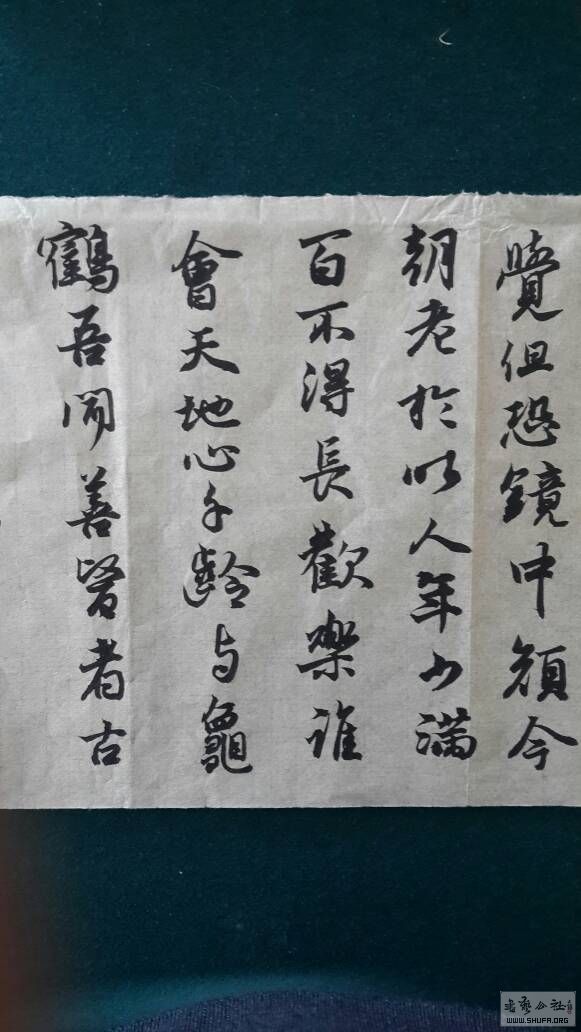 覺但恐鏡中顔今
朝老於昨人年少滿
百不得長歡樂誰
會天地心千齡与龜
鶴吾聞善醫者古
書藝公社
WWW.SHUFA.ORG